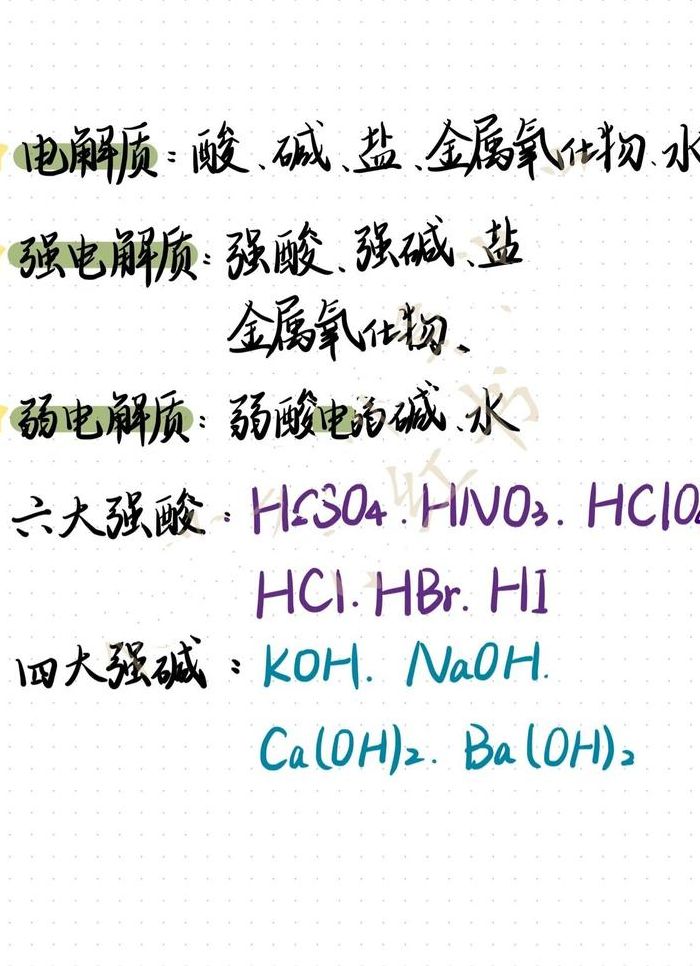 电解质：酸、碱、盐、金属氧化物、水
强电解质：强酸、强碱、盐
金属氧化物、
弱电解质：弱酸电弱碱、水
六大强酸：H₂SO₄.HNO₃.HClO₄
HCl.HBr.HI
四大强碱：KOH.NaOH.
Ca(OH)₂.Ba(OH)₂